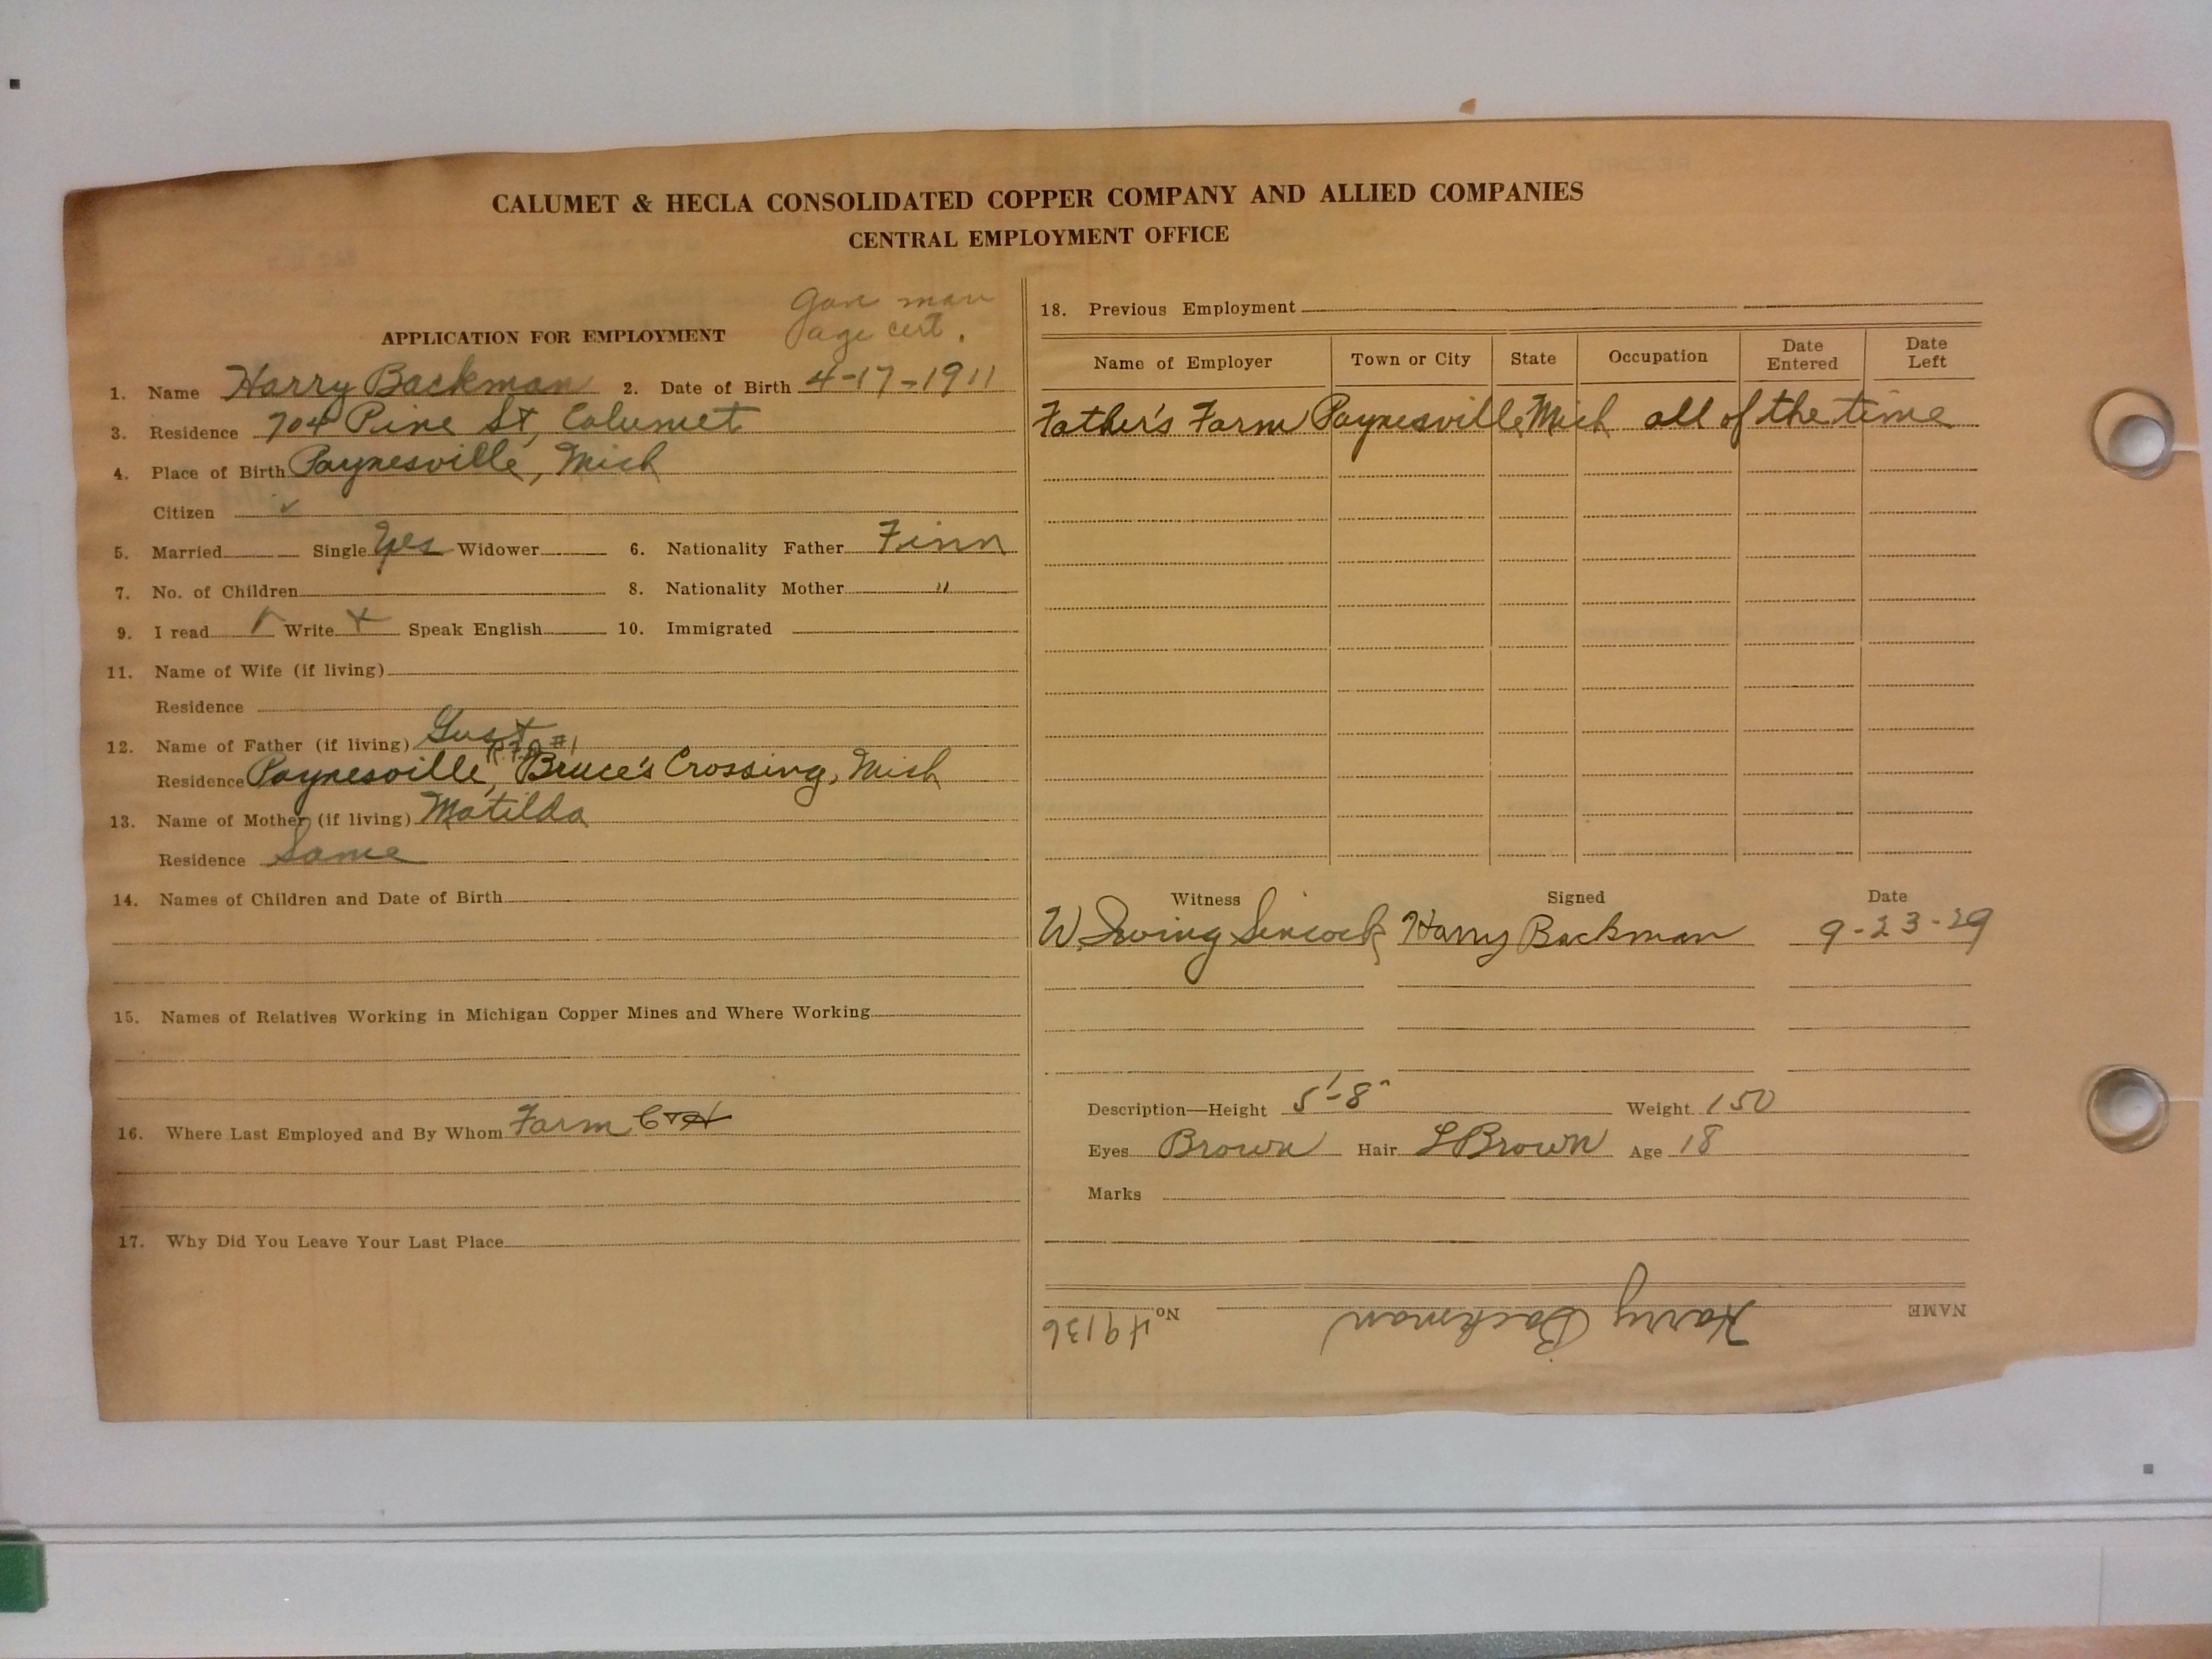 CALUMET & HECLA CONSOLIDATED COPPER COMPANY AND ALLIED COMPANIES
CENTRAL EMPLOYMENT OFFICE
man
age cert.
APPLICATION FOR EMPLOYMENT
1. Name Harry Backman 2. Date of Birth 4-17-1911
3. Residence 704 Pine St, Calumet
4. Place of Birth Paynesville, Mich
Citizen ✓
5. Married Single Yes Widower 6. Nationality Father Finn
7. No. of Children 8. Nationality Mother "
9. I read Write Speak English 10. Immigrated
11. Name of Wife (if living)
Residence
12. Name of Father (if living) Gust
R.F.D #1
Residence Paynesville, Bruce's Crossing, Mich
13. Name of Mother (if living) Matilda
Residence Same
14. Names of Children and Date of Birth
15. Names of Relatives Working in Michigan Copper Mines and Where Working
16. Where Last Employed and By Whom Farm
17. Why Did You Leave Your Last Place
18. Previous Employment
Name of Employer Town or City State Occupation Date Entered Date Left
Father's Farm Paynesville Mich all of the time
Witness Signed Date
W. Irving Sincock Harry Backman 9-23-29
Description—Height 5'-8" Weight 150
Eyes Brown Hair L Brown Age 18
Marks
NAME Harry Backman No. 49136